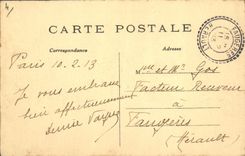 CARTE POSTALE
Correspondance
Adresse
Paris 10.2.13
Je vous embrasse
bien affectueusement
Mme et Mr Gos
Facteur Receveur
à
Faugères
(Hérault)